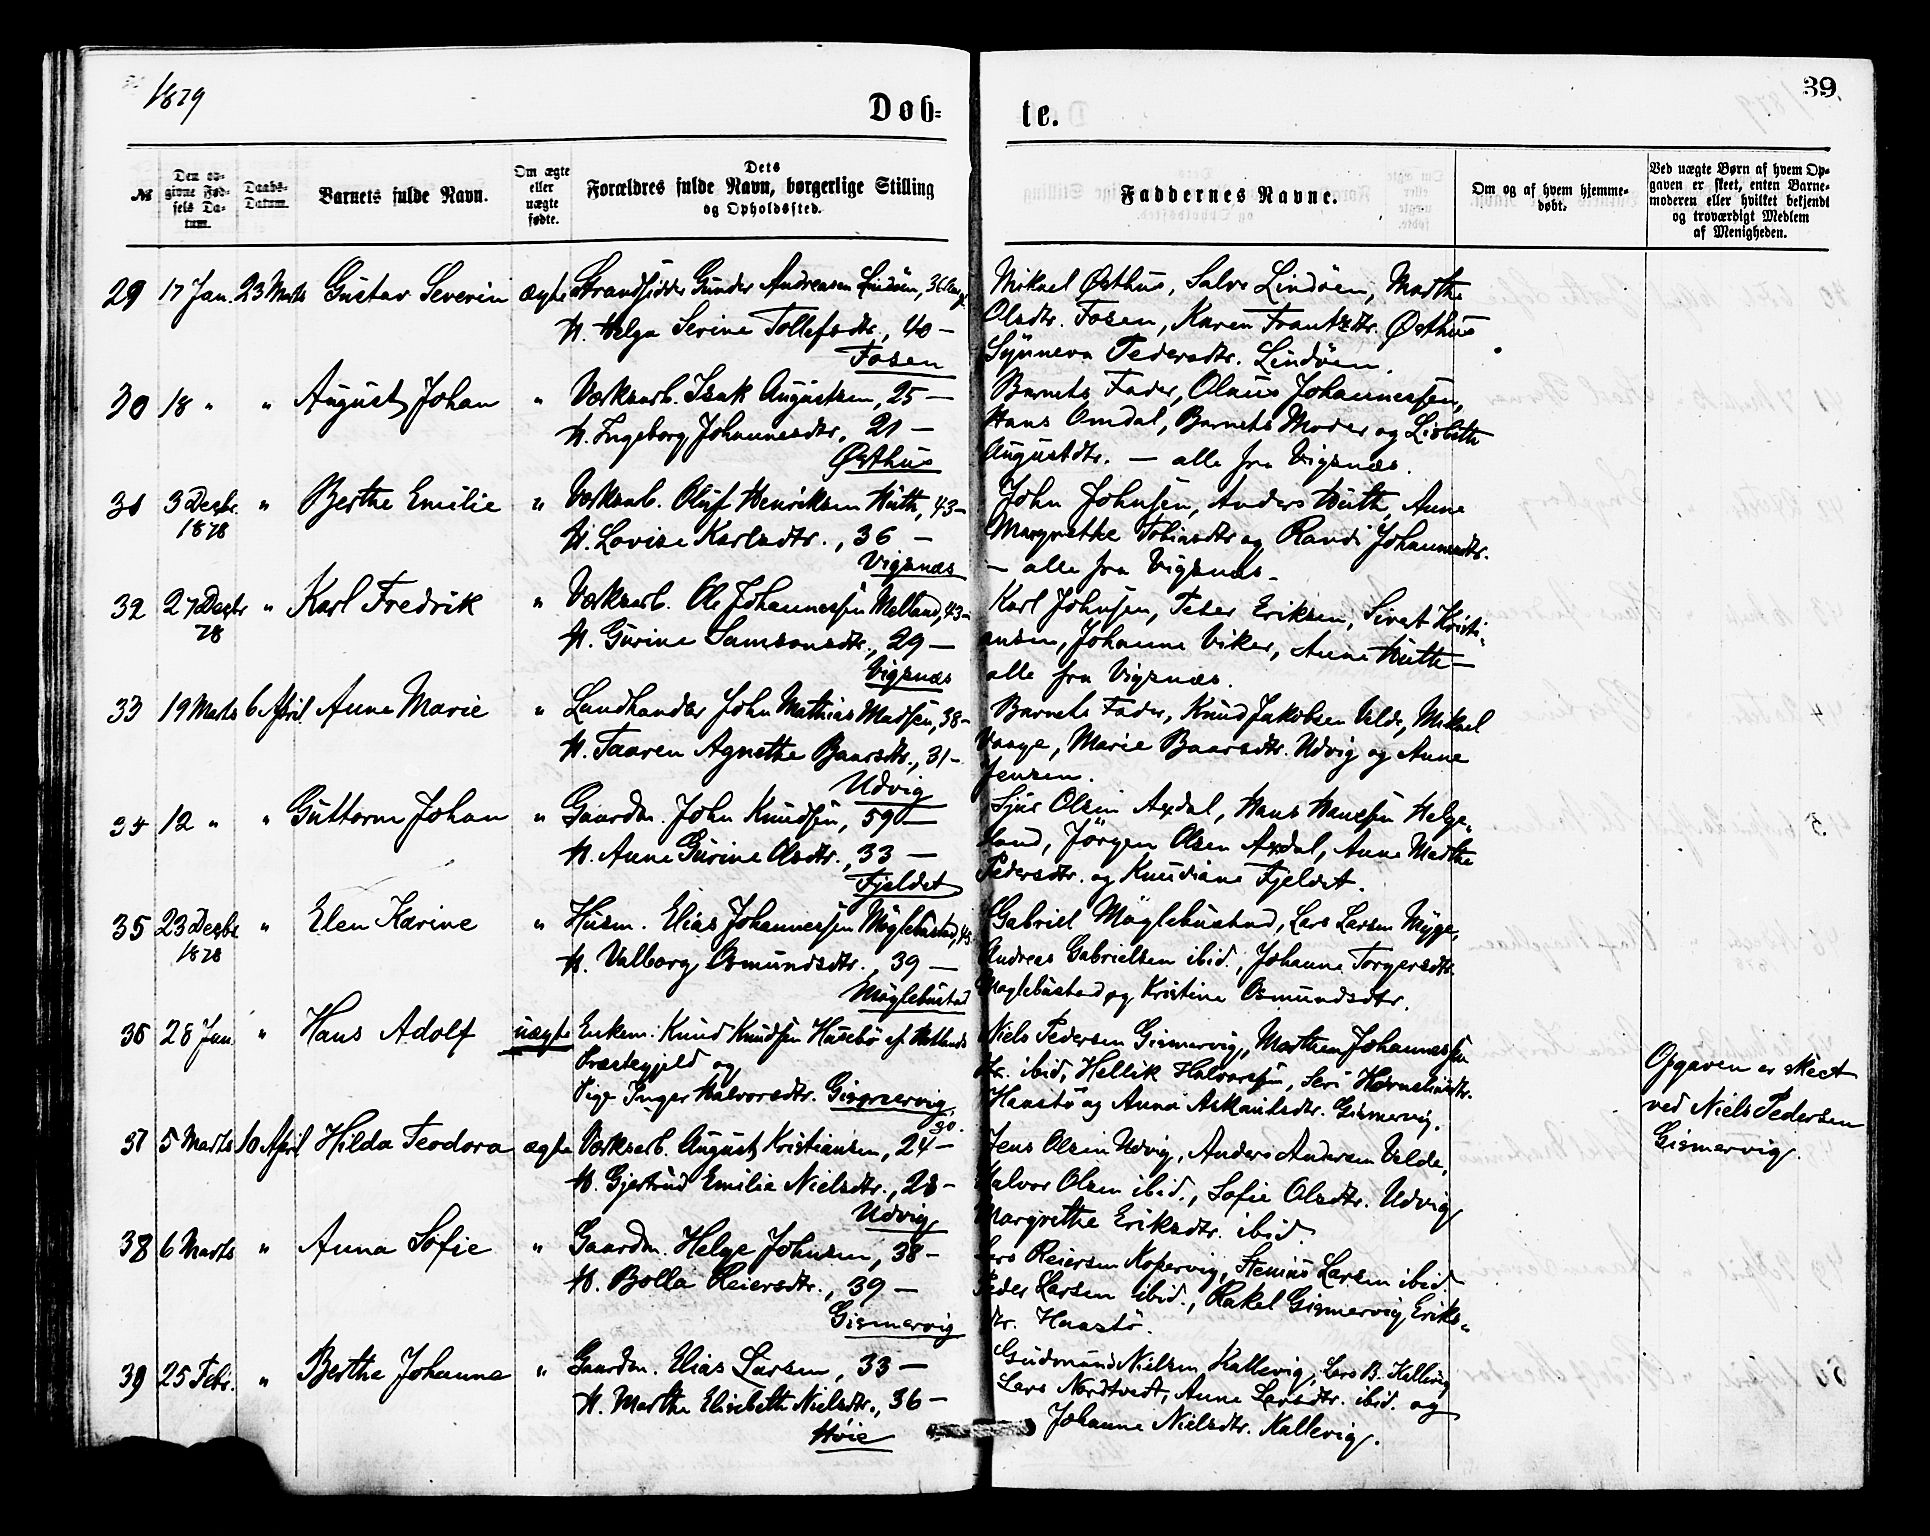 1879
Døb-
te.
39.
№
Den opgivne Fødsels Datum.
Daabs-Datum.
Barnets fulde Navn.
Om ægte eller uægte fødte.
Dets Forældres fulde Navn, borgerlige Stilling og Opholdssted.
Faddernes Navne.
Om og af hvem hjemmedøbt.
Ved uægte Børn af hvem Opgaven er skeet, enten Barnemoderen eller hvilket bekjendt og troværdigt Medlem af Menigheden.
29 17 Jan. 23 Marts Gustav Severin ægte Strandsidder Gunder Andreasen Lindøen, 36
H. Helga Serine Tollefsdtr., 40 —
Fosen
Mikael Østhus, Salve Lindöen, Marthe
Olsdtr. Fosen, Karen Frantzdtr. Østhus
Synneva Pedersdtr. Lindöen.
30 18 " " August Johan " Værksarb. Isak Augustsen, 25 —
H. Ingeborg Johannesdtr., 21 —
Østhus
Barnets Fader, Olaus Johannessen,
Hans Omdal, Barnets Moder og Lisbeth
Augustdtr. — alle fra Vigsnæs.
31 3 Decbr. 1878 " Berthe Emilie " Værksarb. Oluf Henriksen Huth, 43 —
H. Lovise Karlsdtr., 36 —
Vigsnæs
John Johnsen, Anders Huth, Anne
Margrethe Tobiasdtr og Randi Johannesdtr.
— alle fra Vigsnæs —
32 27 Decbr 78 " Karl Fredrik " Værksarb. Ole Johannessen Melland, 43 —
H. Gurine Samsonsdtr., 29 —
Vigsnæs
Karl Johnsen, Peter Eriksen, Sivert Kristi-
ansen, Johanne Viker, Anne Huth —
alle fra Vigsnæs.
33 19 Marts 6 April Anne Marie " Landhandler John Mathias Madsen, 38 —
H. Taaren Agnethe Baarsdtr., 31 —
Udvig
Barnets Fader, Knud Jakobsen Velde, Mikael
Vaage, Marie Baarsdtr. Udvig og Anne
Jensen.
34 12 " " Guttorm Johan " Gaardm. John Knudsen, 59 —
H. Anne Gurine Olsdtr., 33 —
Fjeldet
Sjur Olsen Axdal, Hans Hansen Helge-
land, Jörgen Olsen Axdal, Anne Marthe
Pedersdtr. og Knudiane Fjeldet.
35 23 Decbr 1878 " Elen Karine " Husm. Elias Johannessen Möglebustad,
H. Valborg Osmundsdtr., 39 —
Möglebustad
Gabriel Möglebustad, Lars Larsen Myge,
Andreas Gabrielsen ibid., Johanne Torgersdtr.
Moglebustad og Kristine Osmundsdtr.
36 28 Jan. " Hans Adolf uægte Enkem. Knud Knudsen Husebö af
Præstegjeld og
Pige Inger Halvorsdtr. Gismervig, 30.
Niels Pedersen Gismervig, Marthen Johannessen
ibid., Hellik Halvorsen, Seri
Haastö og Anna Askautsdtr. Gismervig.
Opgaven er skeet
ved Niels Pedersen
Gismervig.
37 5 Marts 10 April Hilda Teodora ægte Værksarb. August Kristiansen, 24 —
H. Gjertrud Emilie Nielsdtr., 28 —
Udvig
Jens Olsen Udvig, Anders Andersen Velde,
Halvor Olsen ibid., Sofie Olsdtr. Udvig
Margrethe Eriksdtr. ibid.
38 6 Marts " Anna Sofie " Gaardm. Helge Johnsen, 38 —
H. Bolla Reiersdtr., 39 —
Gismervig
Lars Reiersen Kopervig, Stenius Larsen ibid.
Peder Larsen ibid., Rakel Gismervig, Eriks-
dtr. Haastö.
39 25 Febr. " Berthe Johanne " Gaardm. Elias Larsen, 33 —
H. Marthe Elisebeth Nielsdtr., 36 —
Høie
Gudmund Nielsen Kallevig, Lars B. Kallevig
Lars Nordtvedt, Anne Larsdtr. ibid. og
Johanne Nielsdtr. Kallevig.